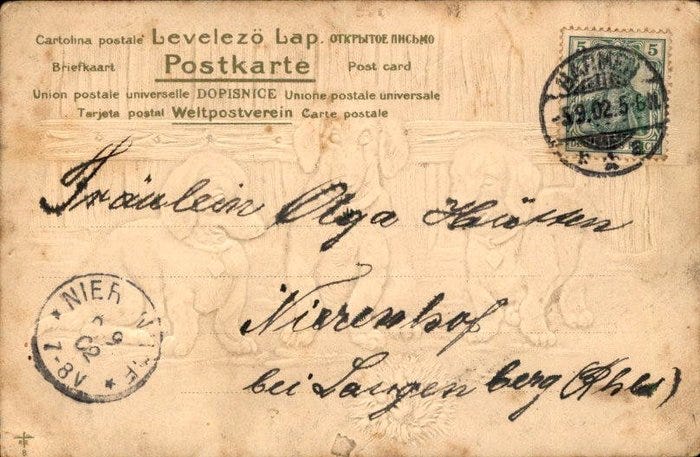 Cartolina postale Levelezö Lap. ОТКРЫТОЕ ПИСЬМО
Briefkaart Postkarte Post card
Union postale universelle DOPISNICE Unione postale universale
Tarjeta postal Weltpostverein Carte postale
5 5
BARMEN
5.9.02.5-6N.
Fräulein Olga
Nierenhof
bei Langenberg (Rhld)
NIER
02
7-8V
8